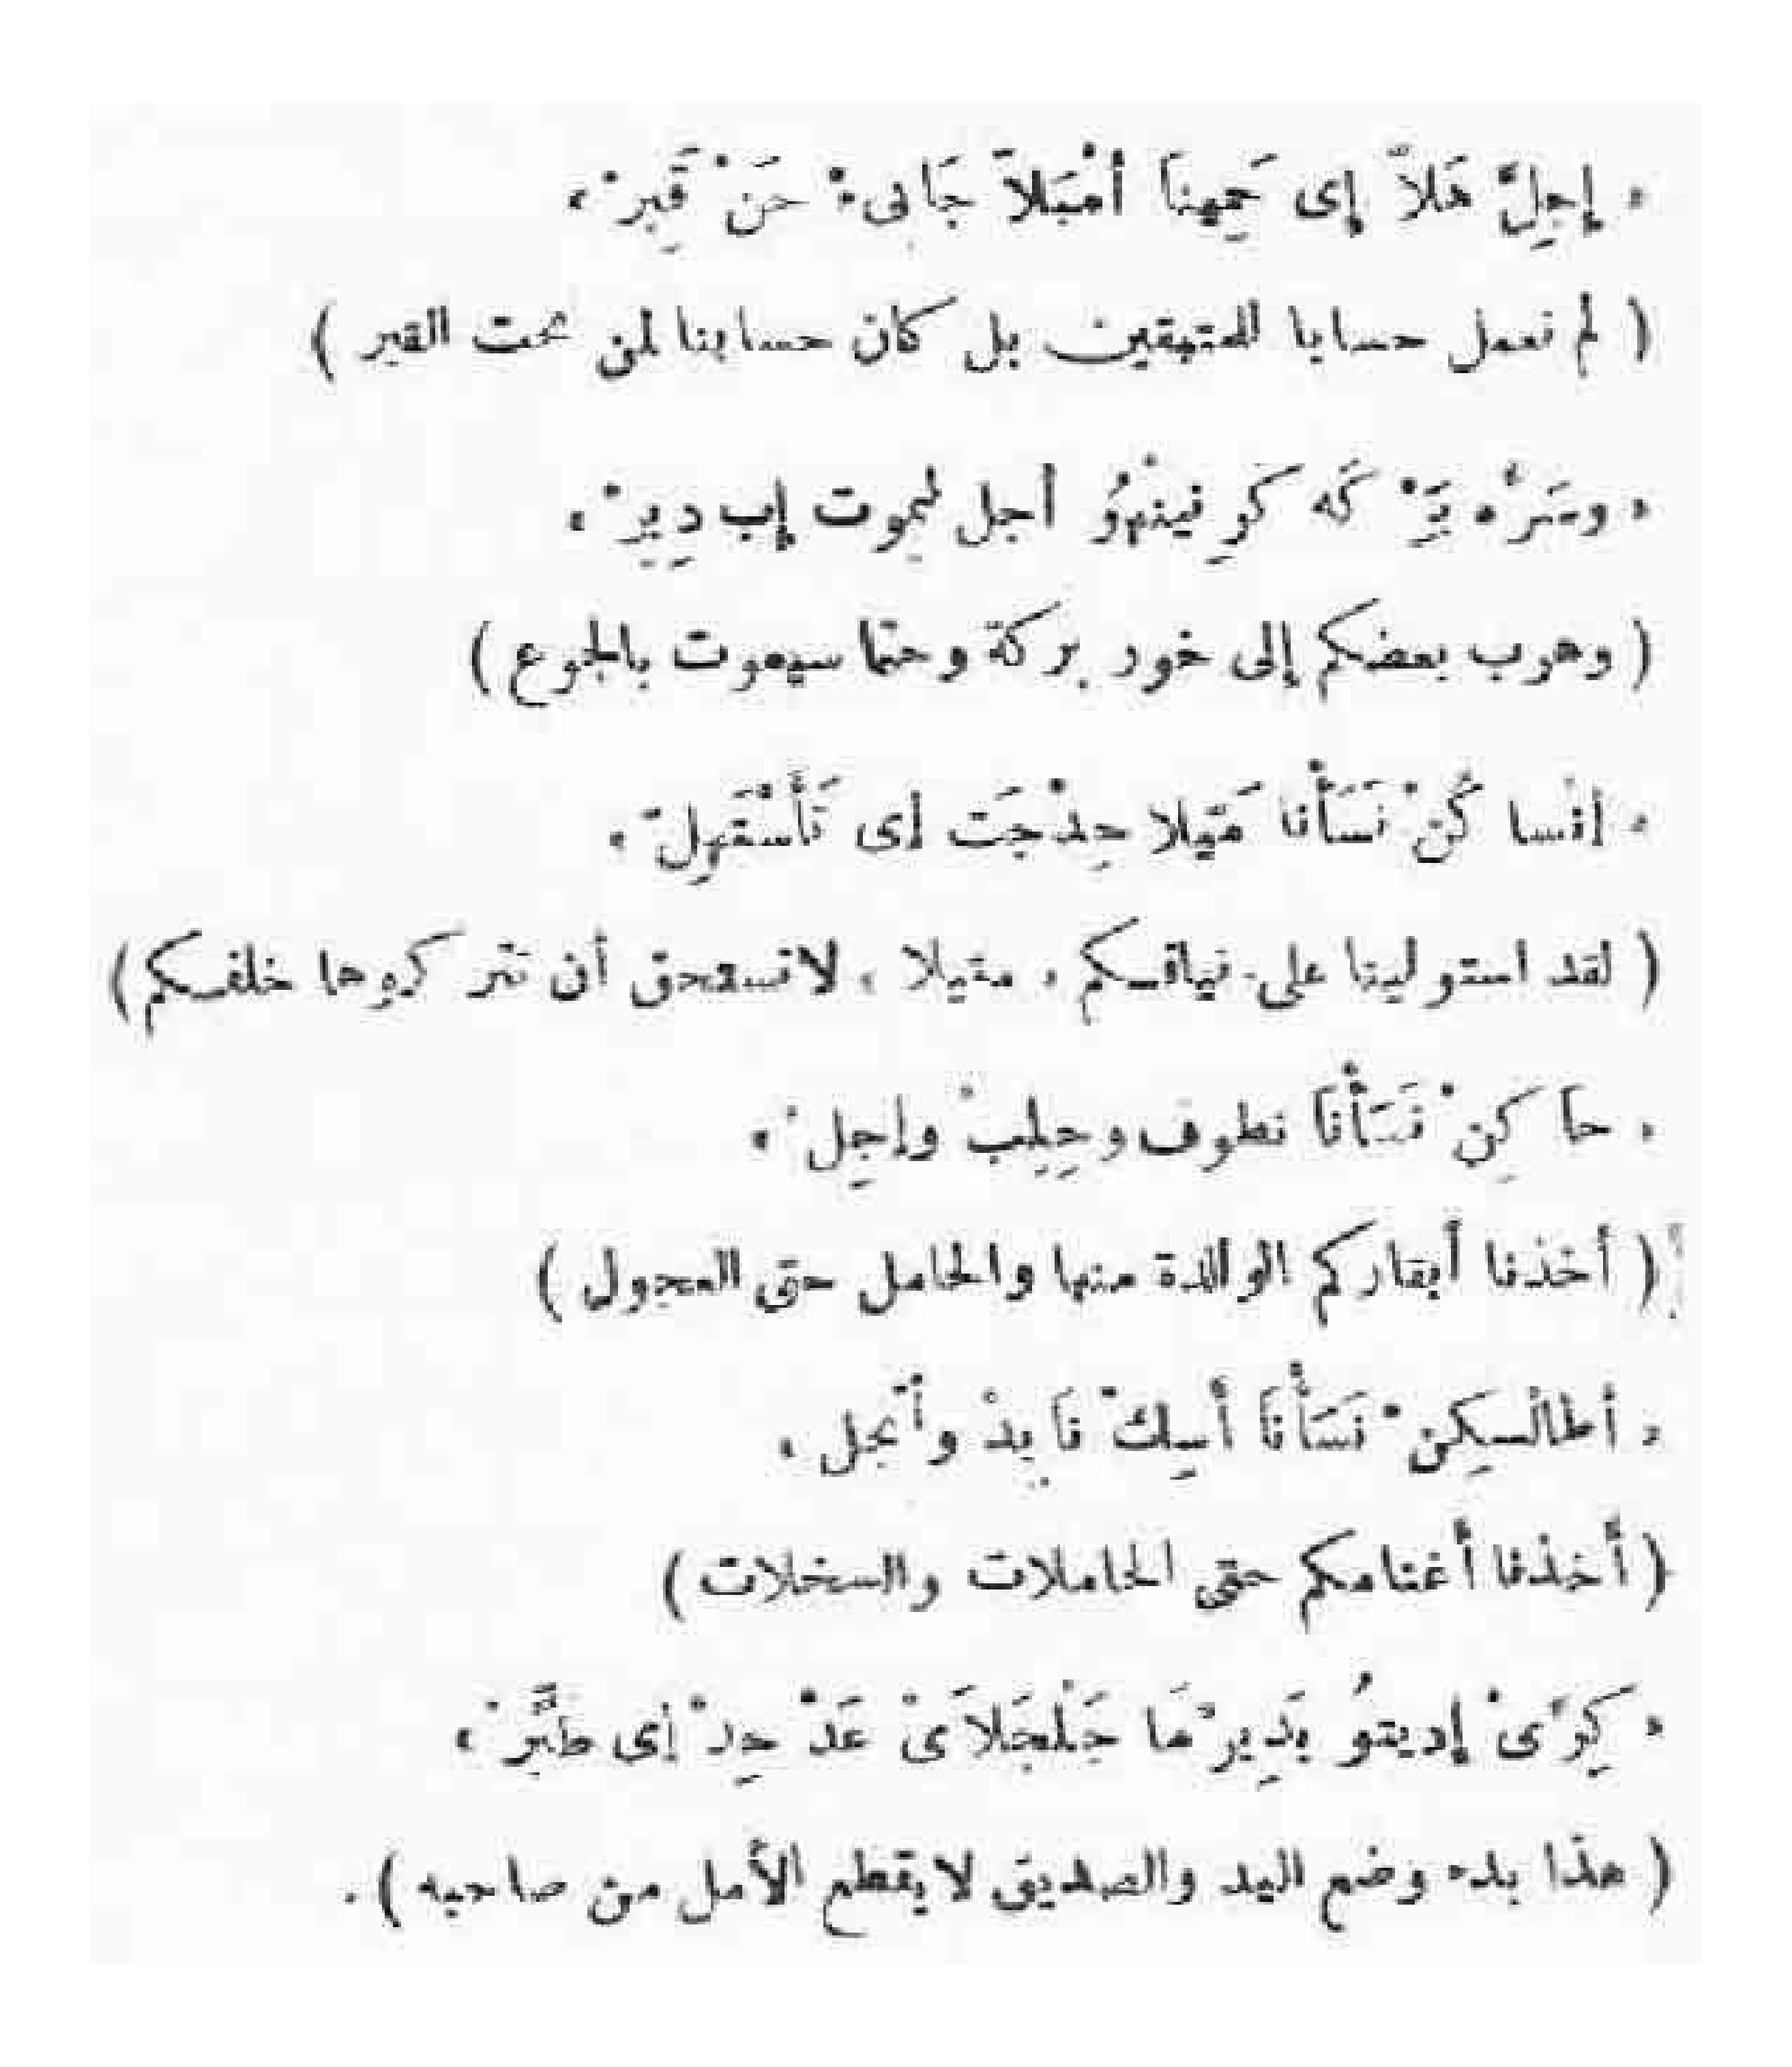 « إجِلّ هَلاّ إى حَمِهنا أمْبَلاَ جَابىْ حَنْ قَبِرْ »
( لم نعمل حسابا للمتبقين بل كان حسابنا لمن تحت القبر )
كَه أجل لیموت إب دِيِرْ »
( وهرب بعضكم إلى خور بركة وحتما سيموت بالجوع )
« أنسا كُنْ نَسَأْنا مَتيلا حِدْجَت أى تَأَسْتَهِلّ »
( لقد استولينا على نياقكم « متيلا » لا تستحق أن تتركوها خلفكم )
« حا كِنْ نَسَأْنَا نطوف وحِلِبْ وإجِلْ »
( أخذنا أبقاركم الوالدة منها والحامل حتى العجول )
« أطالْسكِنْ نَسَأْنَا أسِكّ نَايِدْ وأبْجل »
( أخذنا أغنامكم حتى الحاملات والسخلات )
« كِرَىْ إديتو بَدِيرْمَا جَلْجَلاَىْ عَدْ حِدْ إى طَبِّرْ »
( هذا بدء وضع اليد والصديق لا يقطع الأمل من صاحبه ) .